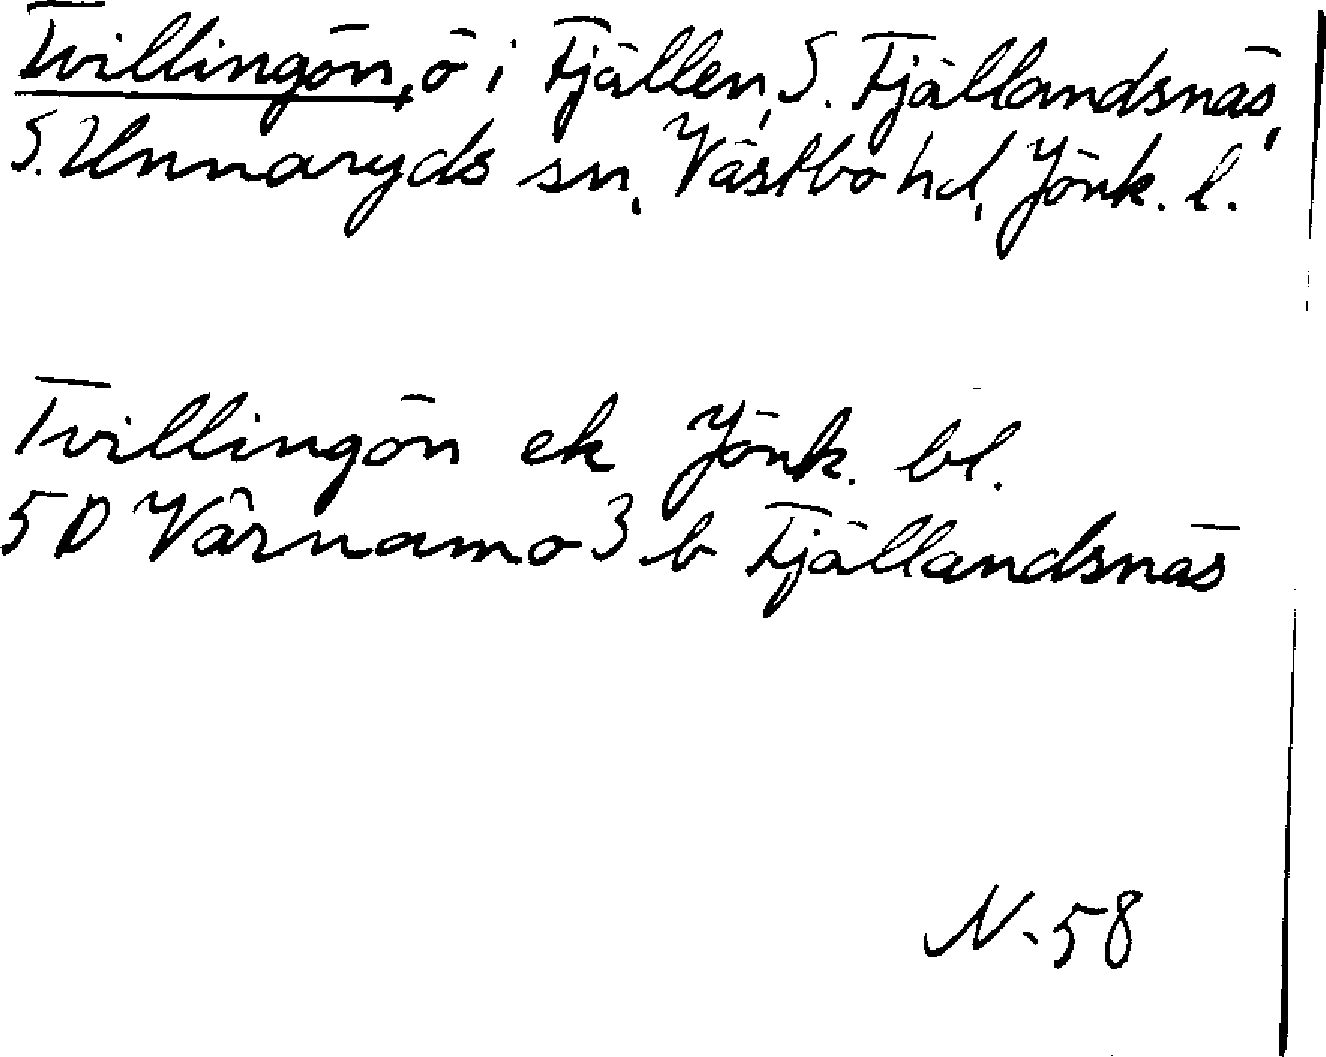 Tvillingön, ö i Fjällen, S. Fjällandsnäs,
S. Unnaryds sn, Västbo hd, Jönk. l.
Tvillingön ek Jönk. bl.
5D Värnamo 3 b Fjällandsnäs
N. 58